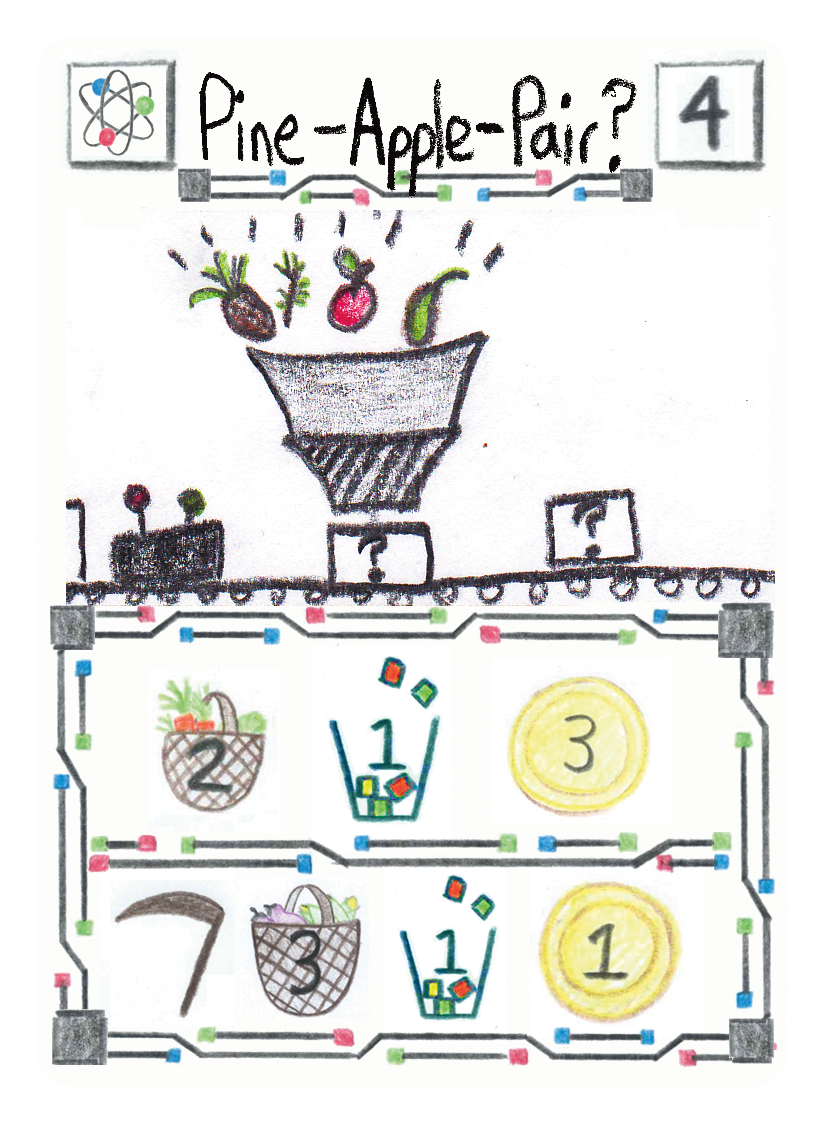 Pine-Apple-Pair? 4
? ?
2 1 3
3 1 1